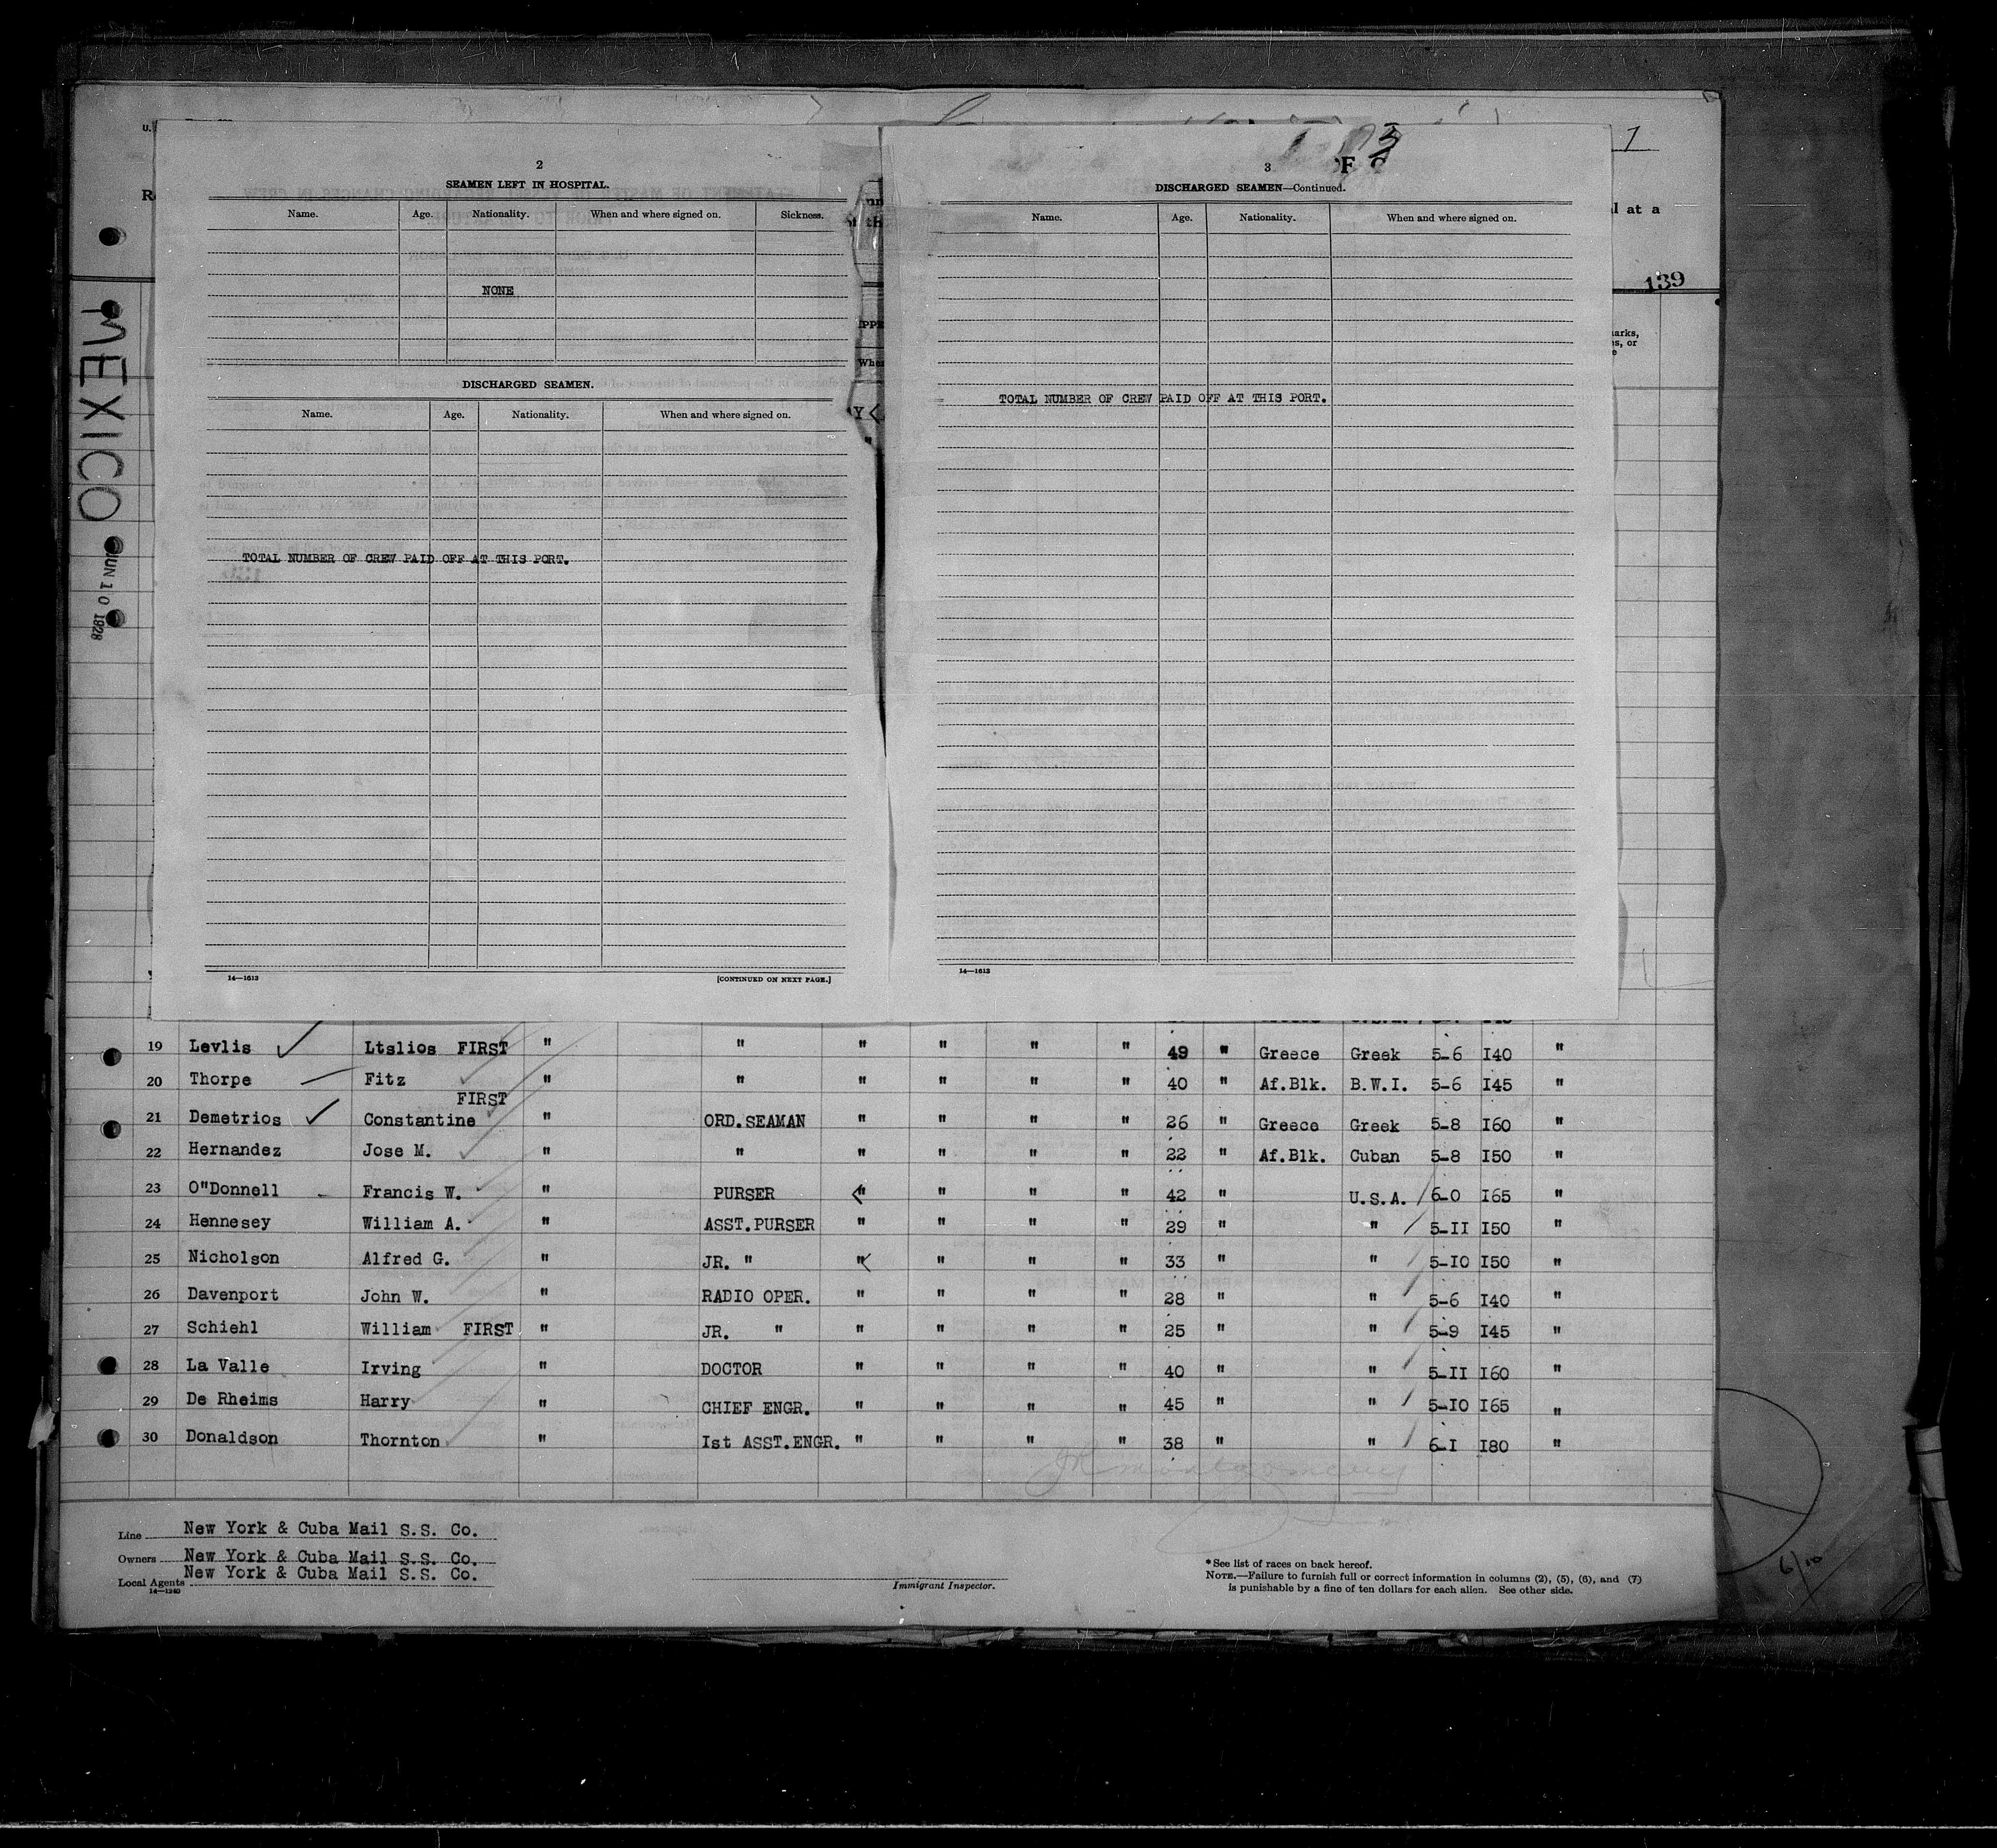 U.
7
R
l at a
139
MEXICO
JUN 10 1928
arks,
s, or
e
2
SEAMEN LEFT IN HOSPITAL.
Name. Age. Nationality. When and where signed on. Sickness.
NONE
DISCHARGED SEAMEN.
Name. Age. Nationality. When and where signed on.
TOTAL NUMBER OF CREW PAID OFF AT THIS PORT.
14—1613 [CONTINUED ON NEXT PAGE.]
3
DISCHARGED SEAMEN—Continued.
Name. Age. Nationality. When and where signed on.
TOTAL NUMBER OF CREW PAID OFF AT THIS PORT.
14—1613
19 Levlis Ltslios FIRST " " " " " " 49 " Greece Greek 5-6 I40 "
20 Thorpe Fitz " " " " " " 40 " Af.Blk. B.W.I. 5-6 I45 "
21 Demetrios Constantine FIRST " ORD.SEAMAN " " " " 26 " Greece Greek 5-8 I60 "
22 Hernandez Jose M. " " " " " " 22 " Af.Blk. Cuban 5-8 I50 "
23 O"Donnell Francis W. " PURSER " " " " 42 " U.S.A. 6-0 I65 "
24 Hennesey William A. " ASST.PURSER " " " " 29 " " 5-II I50 "
25 Nicholson Alfred G. " JR. " " " " " 33 " " 5-IO I50 "
26 Davenport John W. " RADIO OPER. " " " " 28 " " 5-6 I40 "
27 Schiehl William FIRST " JR. " " " " " 25 " " 5-9 I45 "
28 La Valle Irving " DOCTOR " " " " 40 " " 5-II I60 "
29 De Rheims Harry " CHIEF ENGR. " " " " 45 " " 5-IO I65 "
30 Donaldson Thornton " Ist ASST.ENGR. " " " " 38 " " 6-I I80 "
Line New York & Cuba Mail S.S. Co.
Owners New York & Cuba Mail S.S. Co.
Local Agents New York & Cuba Mail S.S. Co.
14—1240
Immigrant Inspector.
*See list of races on back hereof.
NOTE.—Failure to furnish full or correct information in columns (2), (5), (6), and (7)
is punishable by a fine of ten dollars for each alien. See other side.
6/10